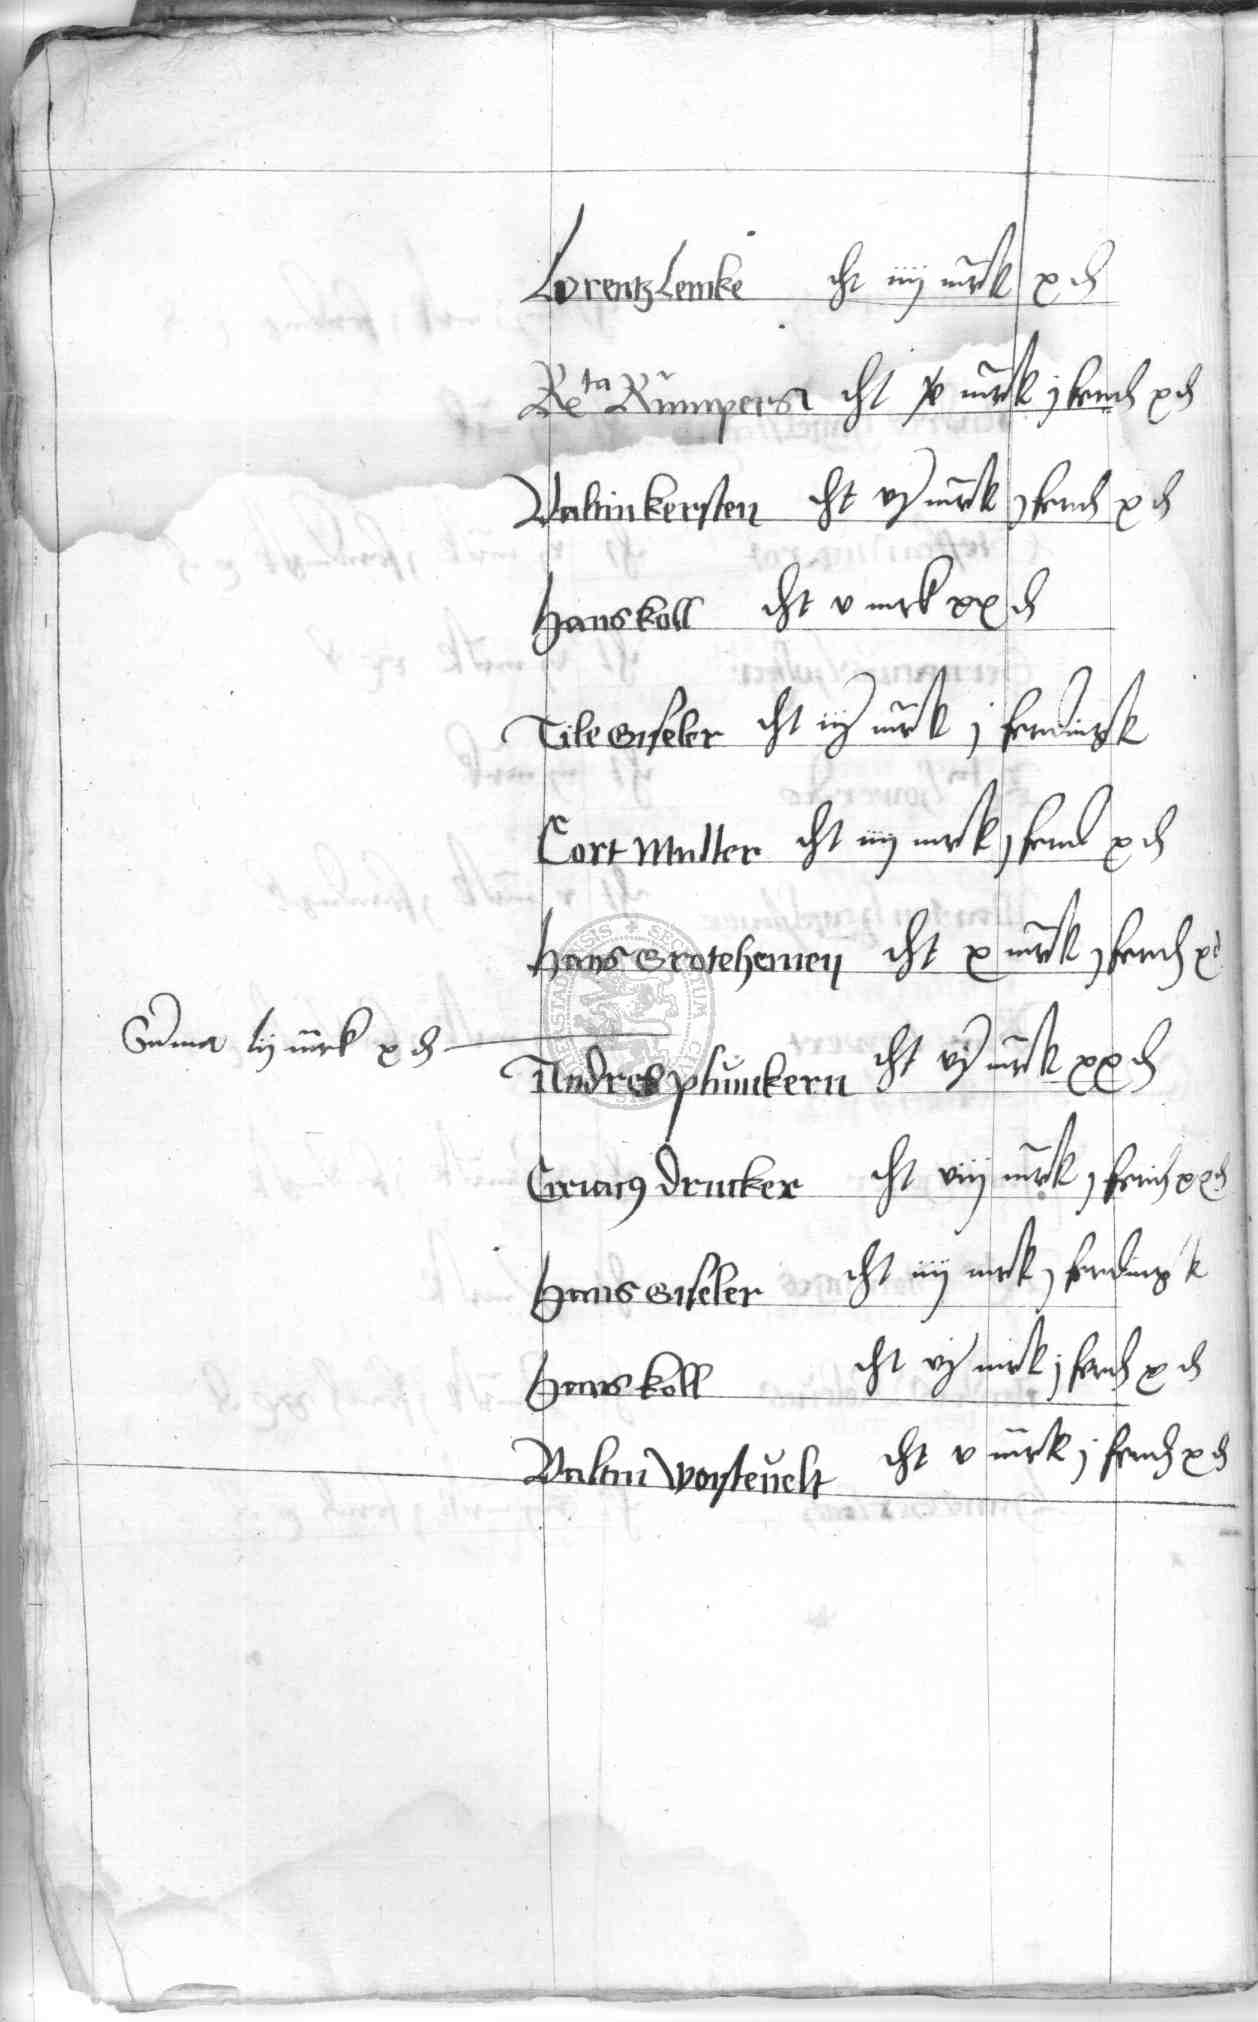 Lorentz Lemke dt iiij mrk x d
Rta Rumpers dt x mrk j ferd x d
Valtin kersten dt vj mrk j ferd x d
Hans koll dt v mrk xx d
Tile Giseler dt iij mrk j ferdingk
Cort Muller dt iiij mrk j ferd x d
Hans Grotehenney dt x mrk j ferd x d
Summa lij mrk x d
Andres phunkern dt vj mrk xx d
Ciriacus drucker dt viij mrk j ferd xx d
Hans Giseler dt iiij mrk j ferdingk
Hans koll dt vj mrk j ferd x d
Valtin Worstevelt dt v mrk j ferd x d